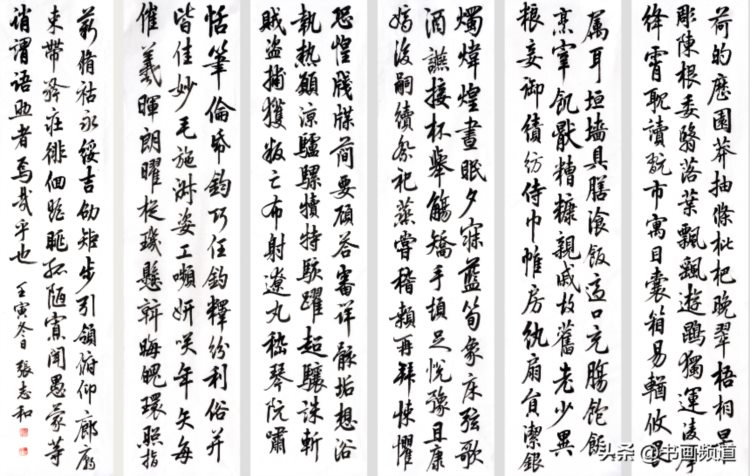 荷的歷園莽抽條枇杷晚翠梧桐早
彫陳根委翳落葉飄飖遊鵾獨運凌摩
絳霄耽讀翫市寓目囊箱易輶攸畏
属耳垣墙具膳湌飯適口充膓飽飫
烹宰飢猒糟糠親戚故舊老少異
粮妾御績紡侍巾帷房紈扇員潔銀
燭煒煌晝眠夕寐藍筍象床弦歌
酒讌接杯舉觴矯手頓足悅豫且康
嫡後嗣續祭祀蒸嘗稽顙再拜悚懼
恐惶牋牒簡要顧答審詳骸垢想浴
執熱願涼驢騾犢特駭躍超驤誅斬
賊盜捕獲叛亡布射遼丸嵇琴阮嘯
恬筆倫紙鈞巧任釣釋紛利俗并
皆佳妙毛施淑姿工嚬妍咲年矢每
催羲暉朗曜旋璣懸斡晦魄環照指
薪脩祜永綏吉劭矩步引領俯仰廊廟
束帶矜莊徘徊瞻眺孤陋寡聞愚蒙等
誚謂語助者焉哉乎也 壬寅冬日 張志和
头条 @书画频道